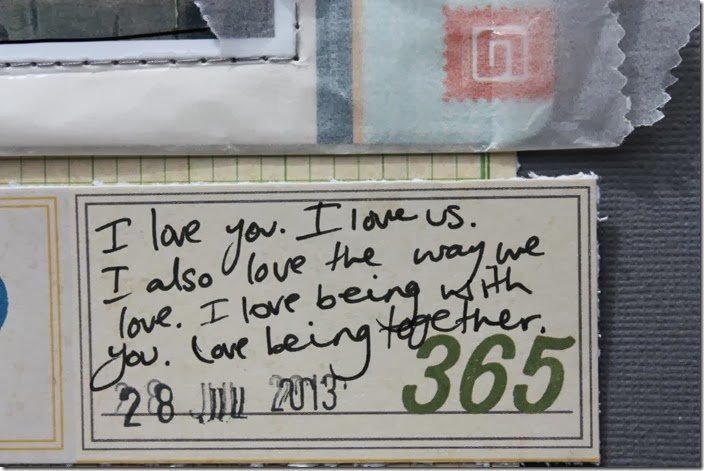 I love you. I love us.
I also love the way we
love. I love being with
you. Love being together.
28 2013
365